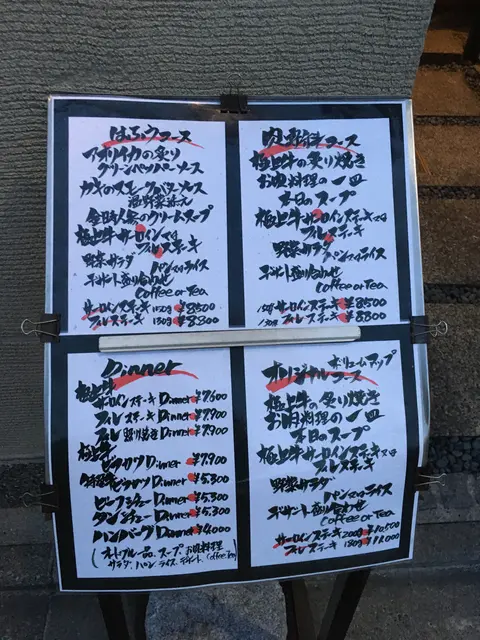 はふうコース
アオリイカの炙り
グリーンペッパーソース
カキのスモークバターソース
温野菜添え
金時人参のクリームスープ
極上牛サーロインステーキ又は
フィレステーキ
野菜サラダ
パン又はライス
デザート盛り合わせ
Coffee or Tea
サーロインステーキ 150g ¥8500
フィレステーキ 130g ¥8800
コース
極上牛の炙り焼き
お肉料理の一皿
本日のスープ
極上牛サーロインステーキ又は
フィレステーキ
野菜サラダ
パン又はライス
デザート盛り合わせ
Coffee or Tea
150g サーロインステーキ ¥8500
130g フィレステーキ ¥8800
Dinner
極上牛
サーロインステーキ Dinner ¥7600
フィレステーキ Dinner ¥7900
フィレ照り焼き Dinner ¥7900
極上牛
ビフカツ Dinner ¥7,900
特選牛ビフカツ Dinner ¥5,300
ビーフシチュー Dinner ¥5,300
タンシチュー Dinner ¥5,300
ハンバーグ Dinner ¥4000
(オードブル一品、スープ、お肉料理
サラダ、パン、ライス、デザート、Coffee Tea)
オリジナルコース
ボリュームアップ
極上牛の炙り焼き
お肉料理の一皿
本日のスープ
極上牛サーロインステーキ又は
フィレステーキ
野菜サラダ
パン又はライス
デザート盛り合わせ
Coffee or Tea
サーロインステーキ 200g ¥10,500
フィレステーキ 180g ¥11,000